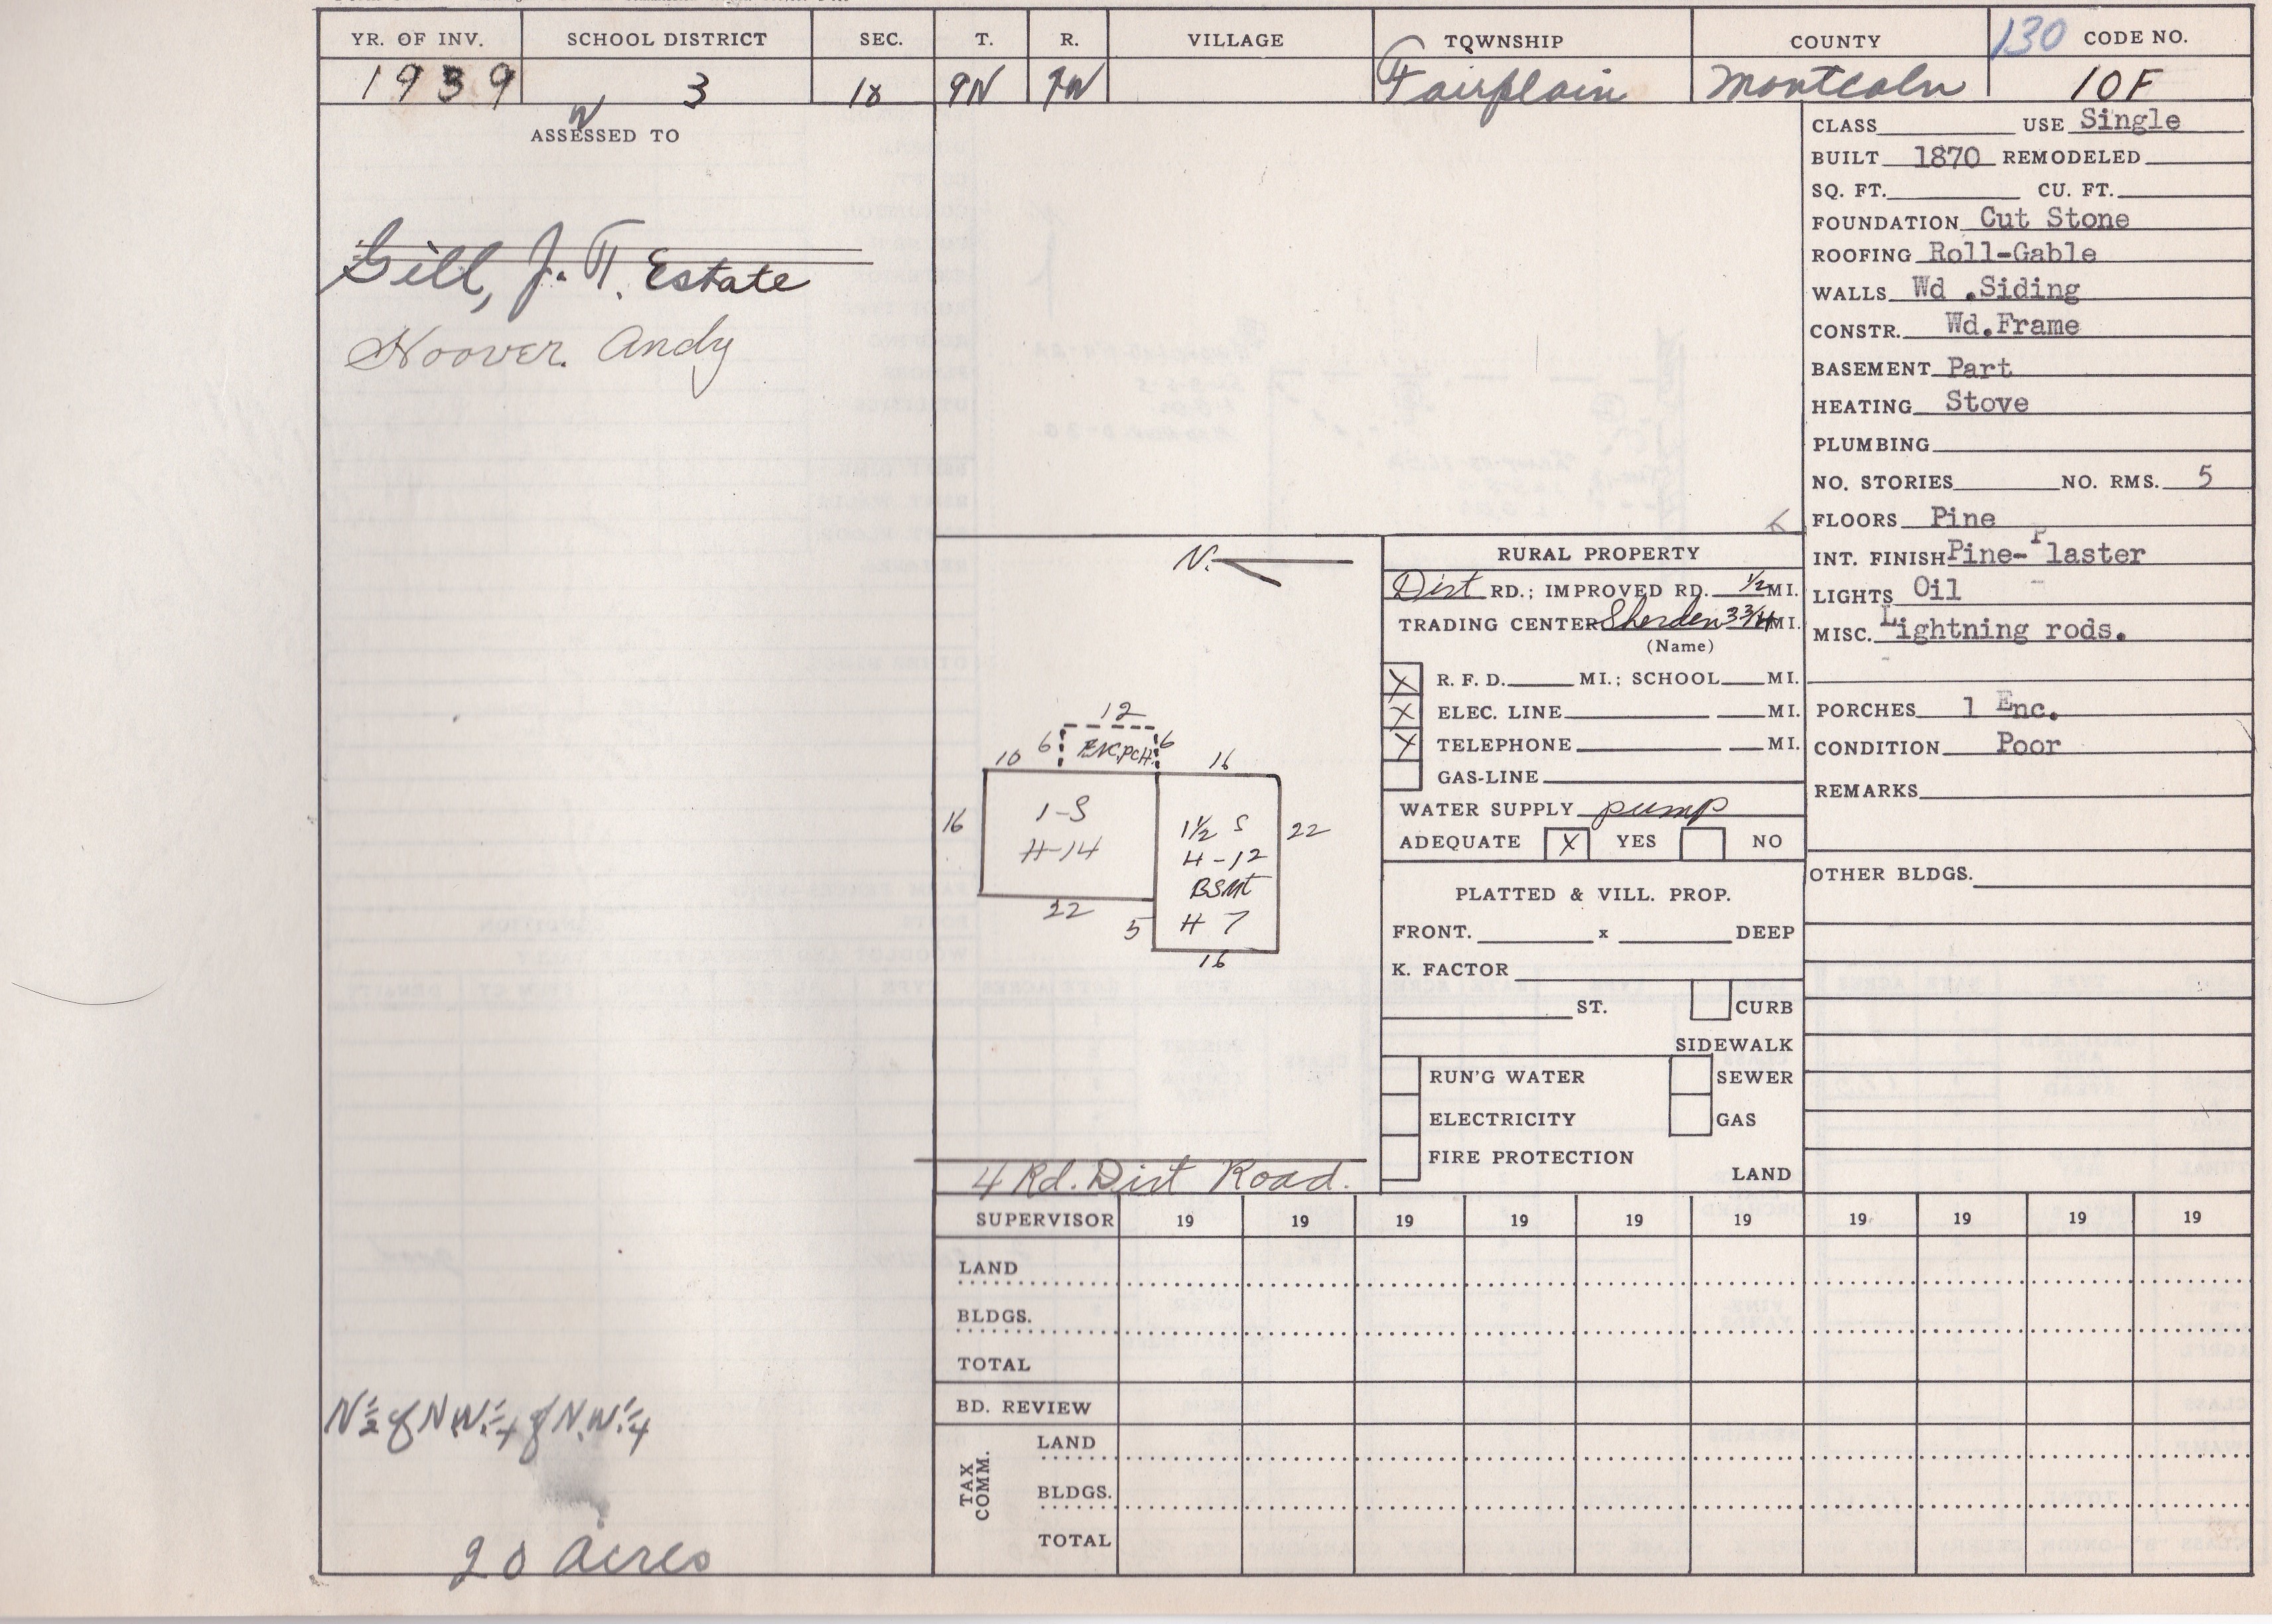 YR. OF INV. SCHOOL DISTRICT SEC. T. R. VILLAGE TOWNSHIP COUNTY 130 CODE NO.
1939 3 18 9N 7W Fairplain Montcalm 10F
W
ASSESSED TO
Gill, J. T. Estate
Hoover. Andy
N 1/2 of N.W. 1/4 of N.W. 1/4
20 Acres
N.
12
10 6 ENC. PCH. 6 16
16 1-S
H-14
1 1/2 S
H-12
BSMT
H 7
22
22
5
16
4 Rd. Dist Road.
RURAL PROPERTY
Dist RD.; IMPROVED RD. 1/2 MI.
TRADING CENTER Sherden 3 3/4 MI.
(Name)
X R. F. D. MI.; SCHOOL MI.
X ELEC. LINE MI.
X TELEPHONE MI.
GAS-LINE
WATER SUPPLY pump
ADEQUATE X YES NO
PLATTED & VILL. PROP.
FRONT. x DEEP
K. FACTOR
ST. CURB
SIDEWALK
RUN'G WATER SEWER
ELECTRICITY GAS
FIRE PROTECTION
LAND
CLASS USE Single
BUILT 1870 REMODELED
SQ. FT. CU. FT.
FOUNDATION Cut Stone
ROOFING Roll-Gable
WALLS Wd .Siding
CONSTR. Wd.Frame
BASEMENT Part
HEATING Stove
PLUMBING
NO. STORIES NO. RMS. 5
FLOORS Pine
INT. FINISH Pine-Plaster
LIGHTS Oil
MISC. Lightning rods.
PORCHES 1 Enc.
CONDITION Poor
REMARKS
OTHER BLDGS.
SUPERVISOR 19 19 19 19 19 19 19 19 19 19
LAND
BLDGS.
TOTAL
BD. REVIEW
TAX COMM.
LAND
BLDGS.
TOTAL